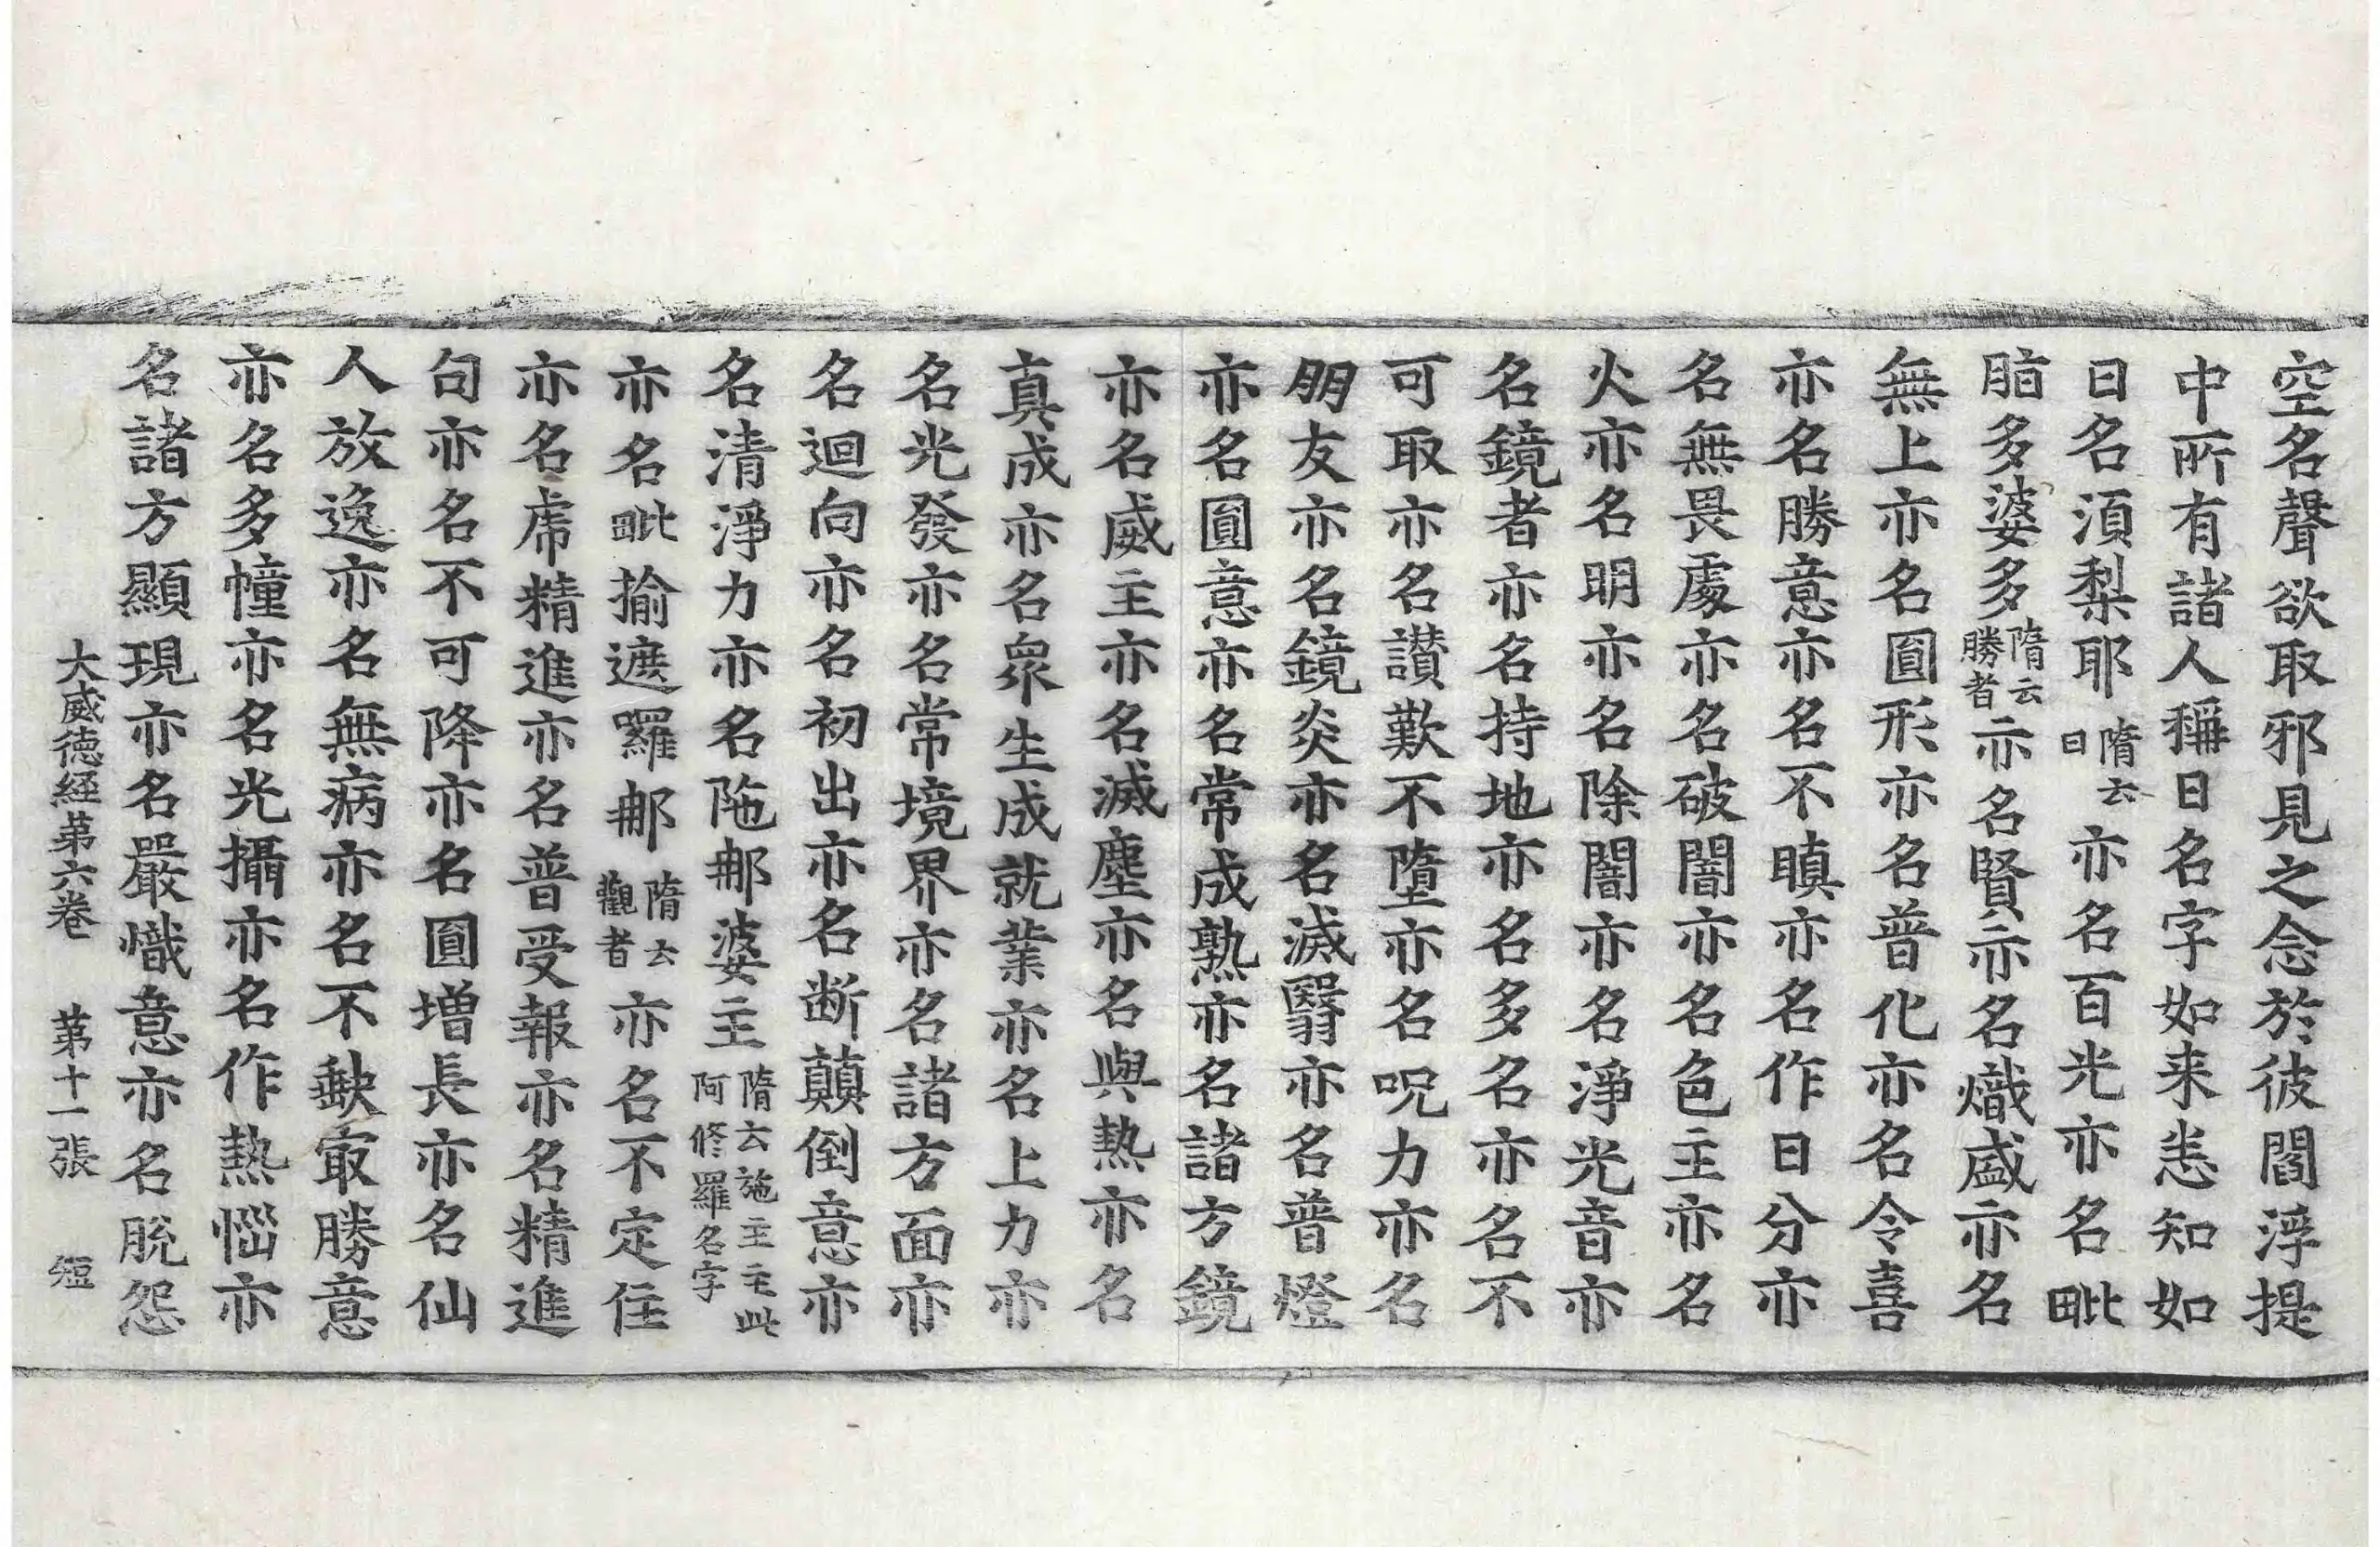 空名聲欲取邪見之念於彼閻浮提
中所有諸人稱日名字如来恙知如
日名湏梨耶隋云日亦名百光亦名毗
脂多婆多隋云勝者亦名賢亦名熾盛亦名
無上亦名圓形亦名普化亦名令喜
亦名勝意亦名不瞋亦名作日分亦
名無畏處亦名破闇亦名色主亦名
火亦名明亦名除闇亦名淨光音亦
名鏡者亦名持地亦名多名亦名不
可取亦名讃歎不墮亦名呪力亦名
朋友亦名鏡炎亦名滅翳亦名普燈
亦名圓意亦名常成熟亦名諸方鏡
亦名威主亦名滅塵亦名與熱亦名
真成亦名衆生成就業亦名上力亦
名光發亦名常境界亦名諸方面亦
名迴向亦名初出亦名断顛倒意亦
名清淨力亦名陁那婆主隋云施主主此阿修羅名字
亦名毗揄遮羅那隋云觀者亦名不定住
亦名虎精進亦名普受報亦名精進
句亦名不可降亦名圓增長亦名仙
人放逸亦名無病亦名不缺㝡勝意
亦名多幢亦名光攝亦名作熱惱亦
名諸方顯現亦名嚴熾意亦名脫怨
大威德経第六卷　第十一張　短